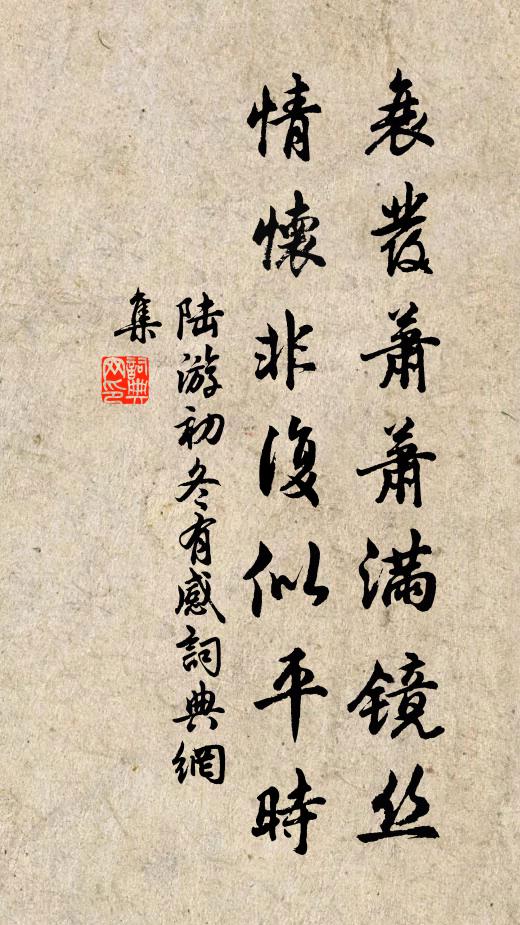 衰發蕭蕭滿鏡丝
情懷非復似平時
陆游初冬有感詞典網
集
詞典
网印